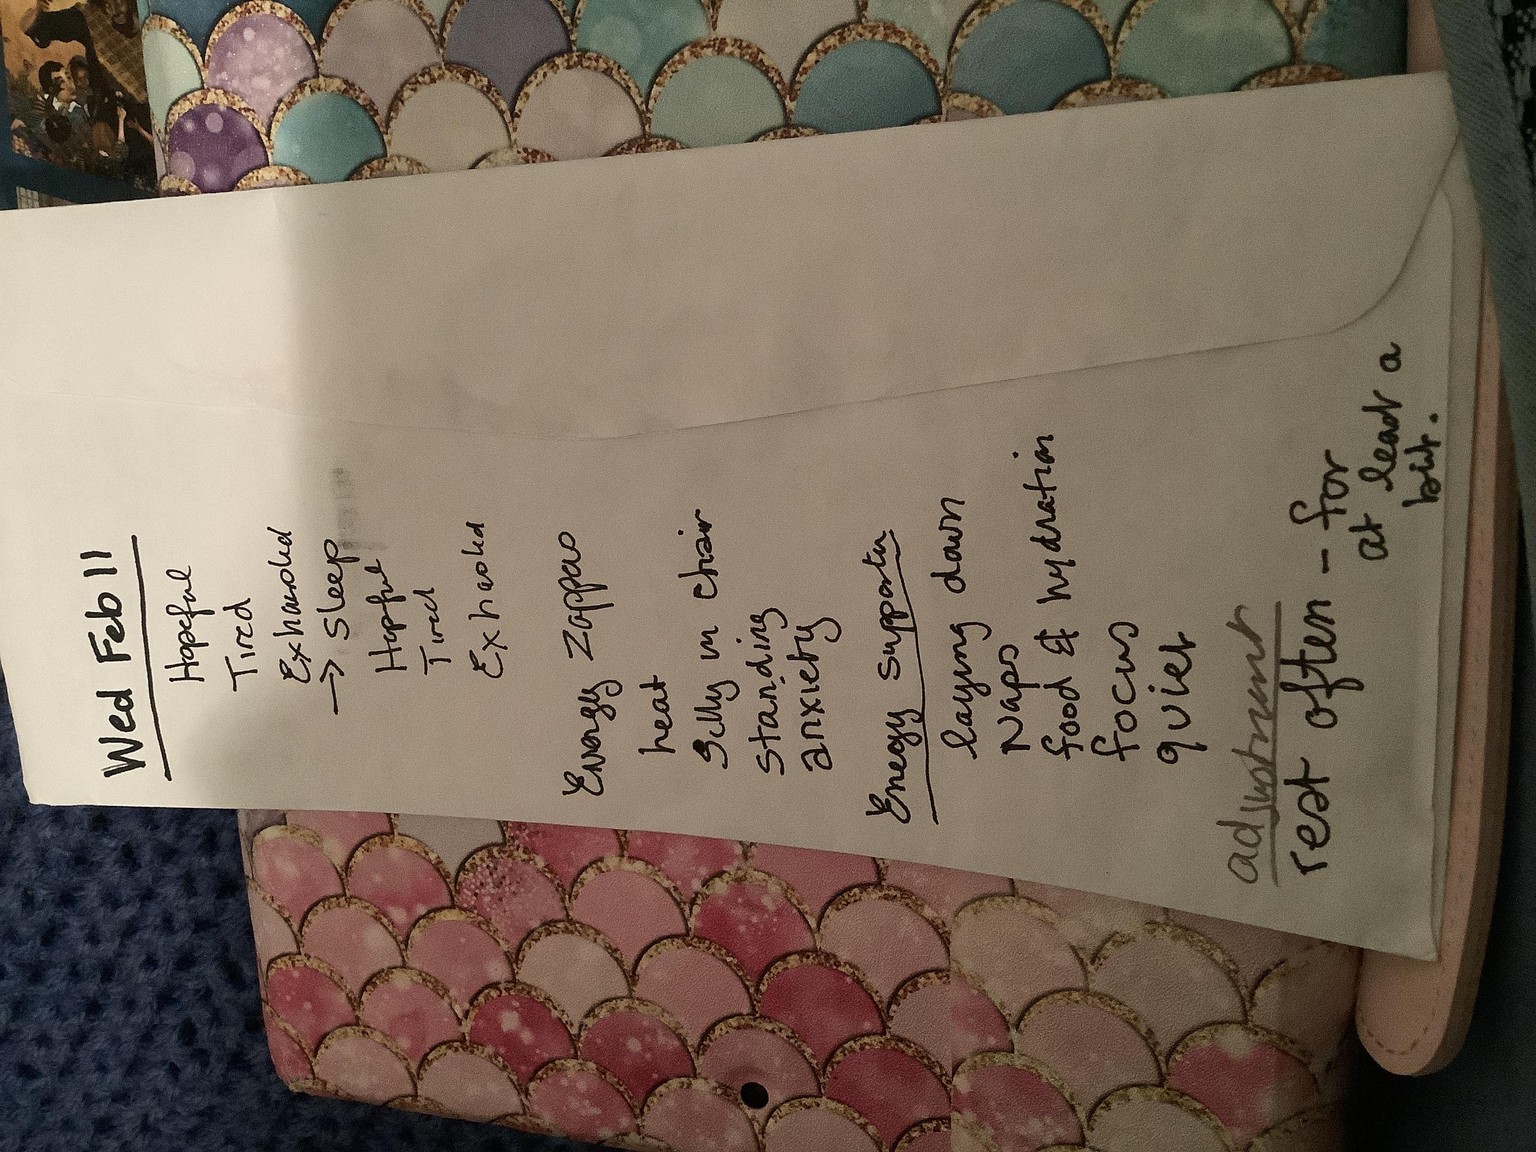 Wed Feb 11
Hopeful
Tired
Exhausted
→ Sleep
Hopful
Tired
Exhausted
Energy Zappers
heat
Silly in chair
standing
anxiety
Energy supports
laying down
Naps
food & hydration
focus
quiet
adjustment
rest often - for
at least a
bit.